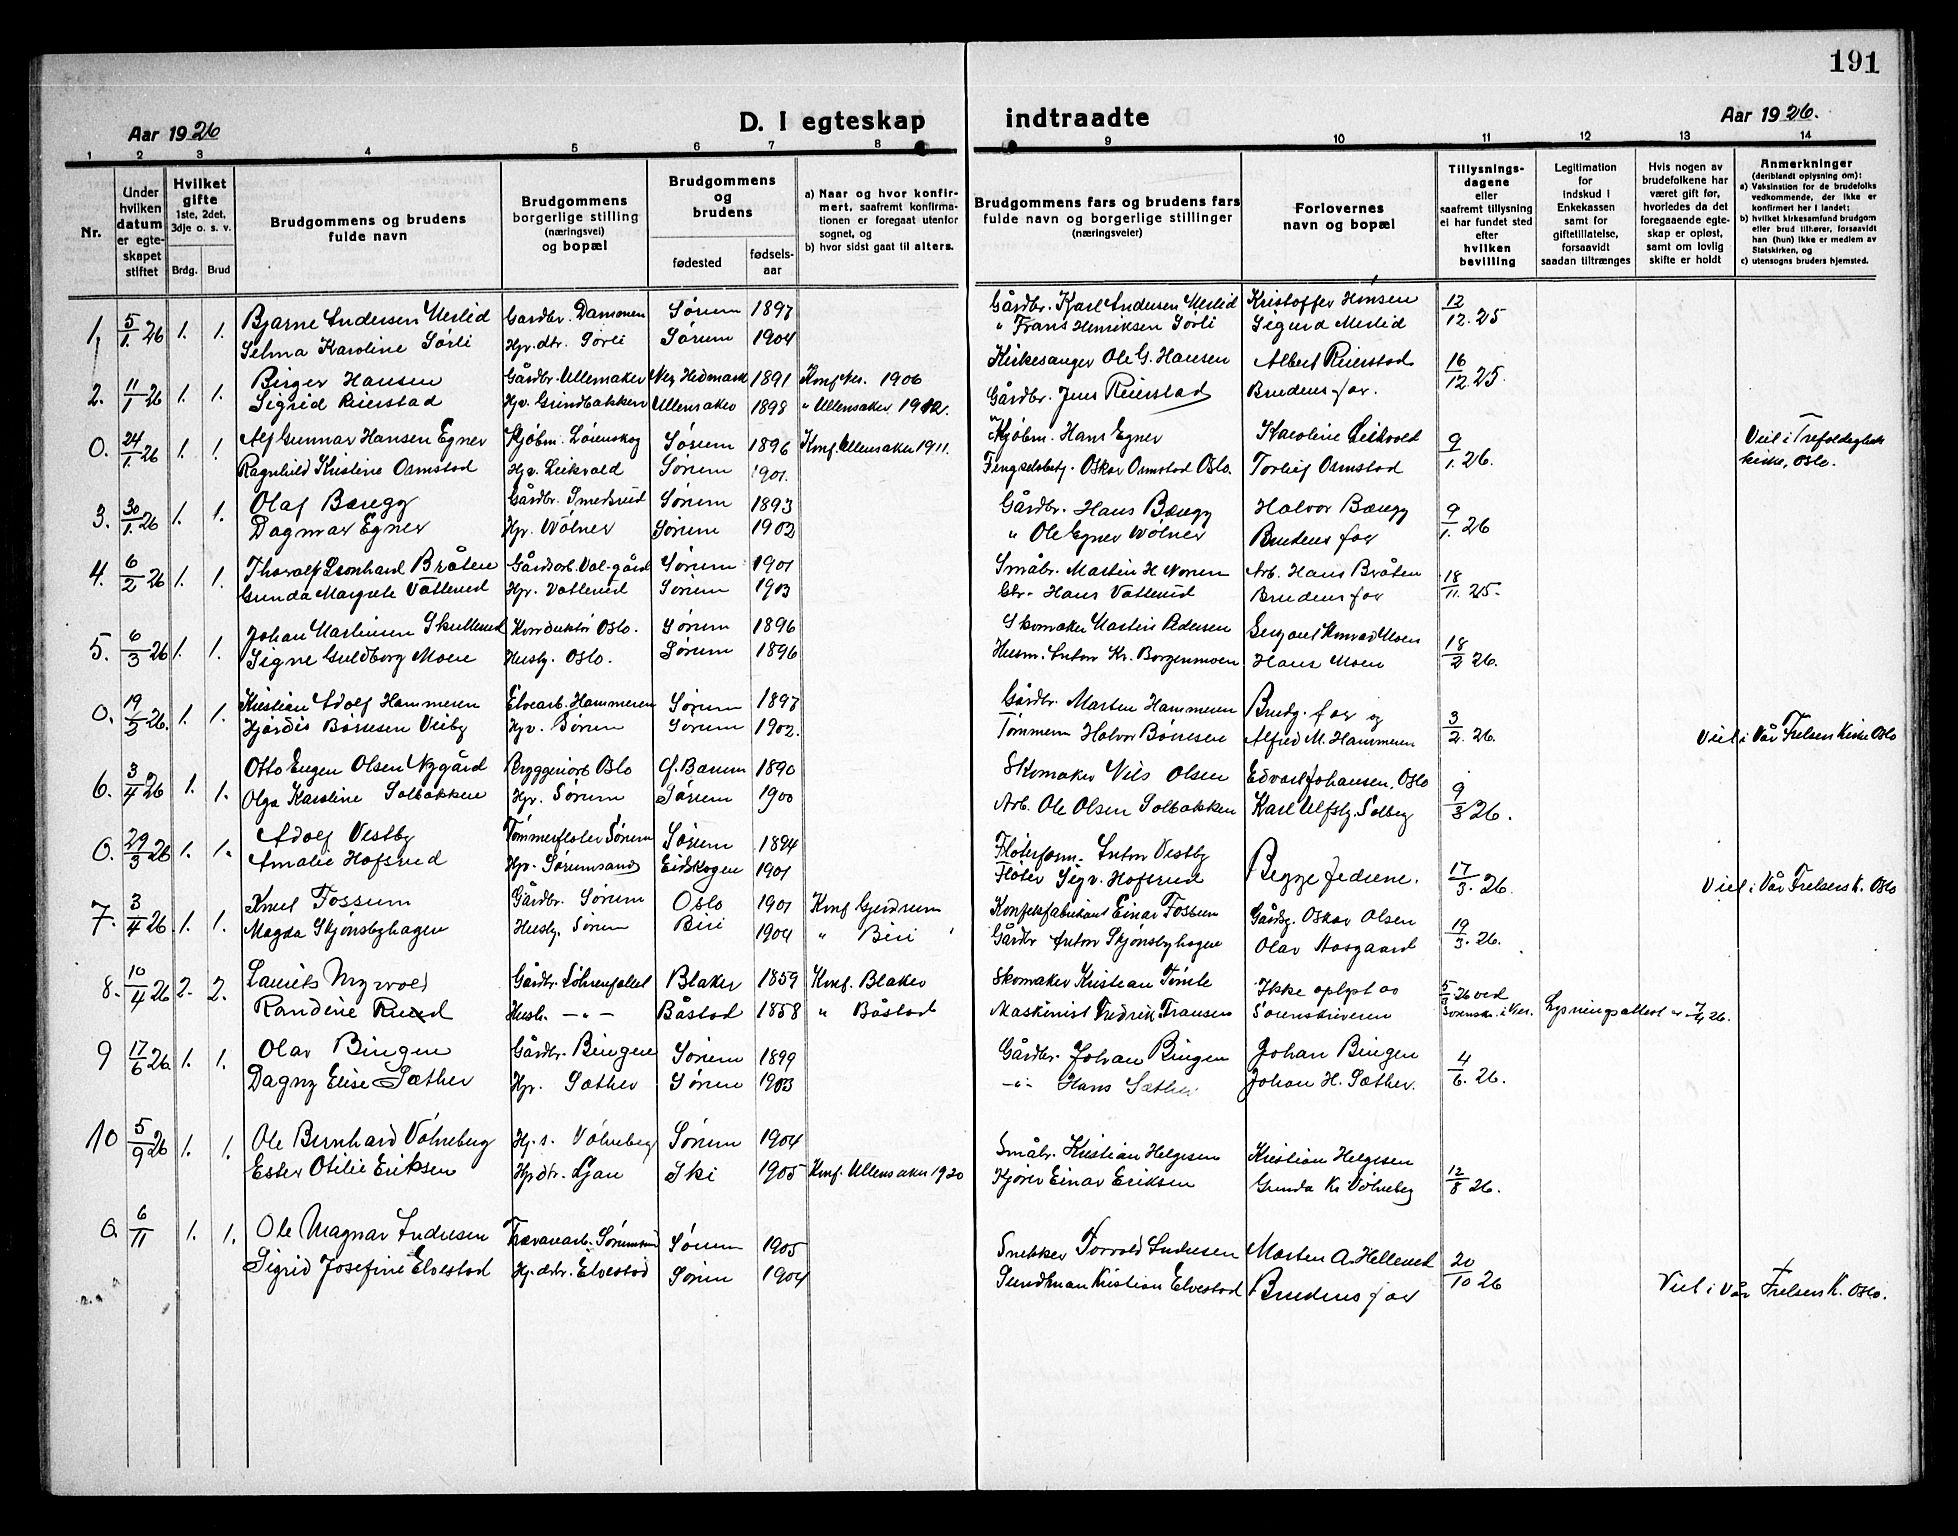 191
Aar 1926
D. I egteskap indtraadte
Aar 1926.
1 2 3 4 5 6 7 8 9 10 11 12 13 14
Nr.
Under hvilken datum er egte-skapet stiftet
Hvilket gifte
1ste, 2det, 3dje o. s. v.
Brdg. Brud
Brudgommens og brudens fulde navn
Brudgommens og brudens borgerlige stilling (næringsvei) og bopæl
Brudgommens og brudens
fødested
fødsels-aar
a) Naar og hvor konfir-mert, saafremt konfirma-tionen er foregaat utenfor sognet, og
b) hvor sidst gaat til alters.
Brudgommens fars og brudens fars fulde navn og borgerlige stillinger (næringsveier)
Forlovernes navn og bopæl
Tillysnings-dagene eller saafremt tillysning ei har fundet sted efter hvilken bevilling
Legitimation for indskud i Enkekassen samt for giftetillatelse, forsaavidt saadan tiltrænges
Hvis nogen av brudefolkene har været gift før, hvorledes da det foregaaende egte-skap er opløst, samt om lovlig skifte er holdt
Anmerkninger
(deriblandt oplysning om):
a) Vaksination for de brudefolks vedkommende, der ikke er konfirmert her i landet;
b) hvilket kirkesamfund brudgom eller brud tilhører, forsaavidt han (hun) ikke er medlem av Statskirken, og
c) utensogns bruders hjemsted.
1. 5/1 26 1. 1. Bjarne Andersen Merlid Gardbr. Damonen Sørum 1897 Gårdbr. Karl Andersen Merlid Kristoffer Hansen 12/12. 25
Selma Karoline Sørli Hp. dtr. Sørli Sørum 1904 " Frans Henriksen Sørli Sigurd Merlid
2. 11/1 26 1. 1. Birger Hansen Gårdbr. Ullensaker Nes Hedmark 1891 Konf. Nes. 1906 Kirkesanger Ole G. Hansen Albert Reierstad 16/12. 25.
Sigrid Reierstad Hp. Grindbakken Ullensaker 1898 " Ullensaker 1912. Gårdbr. Jens Reierstad Brudens far.
0. 24/1. 26 1. 1. Alf Gunnar Hansen Egner Kjøbm. Lørenskog Sørum 1896 Konf. Ullensaker 1911. Kjøbm. Hans Egner Karoline Leikvold 9/1. 26. Viel i Trefoldighets
Ragnhild Kristine Ormstad Hp. Leikvold Sørum 1901. Fengselsbetj. Oskar Ormstad Oslo. Torleif Ormstad kirke, Oslo.
3. 30/1. 26 1. 1. Olaf Bængg Gårdbr. Smedsrud Sørum 1893 Gårdbr. Hans Bængg Halvor Bængg 9/1. 26
Dagmar Egner Hp. Wølner Sørum 1902 " Ole Egner Wølner Brudens far
4. 6/2 26 1. 1. Thoralf Leonhard Bråten Gårdsarb. Val-gård Sørum 1901 Småbr. Martin H. Noren Arb. Hans Bråten 18/11. 25.
Gunda Margrete Vatlerud Hp. Vatlerud Sørum 1903 Gbr. Hans Vatlerud Brudens far
5. 6/3 26 1. 1. Johan Martinsen Skullerud Konduktør Oslo. Sørum 1896 Skomaker Martin Pedersen Sergeant Konrad Moen 18/2 26.
Signe Guldborg Moen Husby. Oslo. Sørum 1896 Husm. Anton Kr. Borgenmoen Hans Moen
0. 19/3 26. 1. 1. Kristian Adolf Hammeren Elvearb. Hammeren Sørum 1897 Gårdbr. Marten Hammeren Brudg. far og 3/2. 26. Viel i Vår Frelsers Kirke Oslo
Hjørdis Børresen Vieby Hp. Sørum Sørum 1902. Tømmerm Halvor Børresen Alfred M. Hammeren
6. 3/4 26 1. 1. Otto Eugen Olsen Nygård Bryggeriarb Oslo Ø. Bærum 1890 Skomaker Nils Olsen Edvard Johansen, Oslo 9/3 26.
Olga Karoline Solbakken Hp. Sørum Sørum 1900 Arb. Ole Olsen Solbakken Karl Alfsbg. Solberg
0. 29/3 26 1. 1. Adolf Vestby Tømmerfløter Sørum Sørum 1894 Fløterform. Anton Vestby Begge fedrene. 17/3. 26. Viel i Vår Frelsers K. Oslo
Amalie Hofsrud Hp. Sørumsand Eidskogen 1901 Fløter Sigv. Hofsrud
7. 3/4 26. 1. 1. Knut Fossum Gårdbr. Sørum Oslo 1901 Konf. Gjerdrum Konfekfabrikant Einar Fossum Gårdsg. Oskar Olsen 19/3. 26.
Magda Skjønsbyhagen Husby. Sørum Biri 1904 " Biri Gårdbr Anton Skjønsbyhagen Olav Aasgaard
8. 10/4 26 2. 2. Laurits Myrvold Gårdbr. Løhrenfallet Blaker 1859 Konf. Blaker Skomaker Kristian Tønste Ikke oplyst av 5/3 26 ved Lysningsattest 7/4 26.
Randine Ruud Husb. -"- Båstad 1858 " Båstad Maskinist Fredrik Fransen Sorenskriveren Sorensk. i Nes.
9 17/6 26 1. 1. Olav Bingen Gårdbr. Bingen Sørum 1899 Gårdbr. Johan Bingen Johan Bingen 4/6. 26.
Dagny Elise Sæther Hp. Sæther Sørum 1903 -"- Hans Sæther Johan H. Sæther.
10 5/9 26 1. 1. Ole Bernhard Vølneberg Hj. s. Vølneberg Sørum 1904 Småbr. Kristian Helgesen Kristian Helgesen 12/8 26.
Ester Otilie Eriksen Hp. dtr. Ljan Ski 1905 Konf. Ullensaker 1920 Kjører Einar Eriksen Gunda Kr Vølneberg
0. 6/11 1. 1. Ole Magnar Andresen Trævarearb. Sørumsand Sørum 1905 Snekker Torvald Andresen Morten A. Hellerud 20/10 26 Viel i Vår Frelsers K. Oslo.
Sigrid Josefine Elvestad Hj. dtr. Elvestad Sørum 1904 Lundkman Kristian Elvestad Brudens far